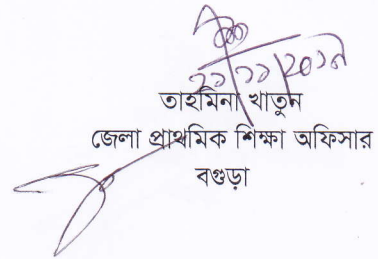 ২১/১১/২০১৭
তাহমিনা খাতুন
জেলা প্রাথমিক শিক্ষা অফিসার
বগুড়া